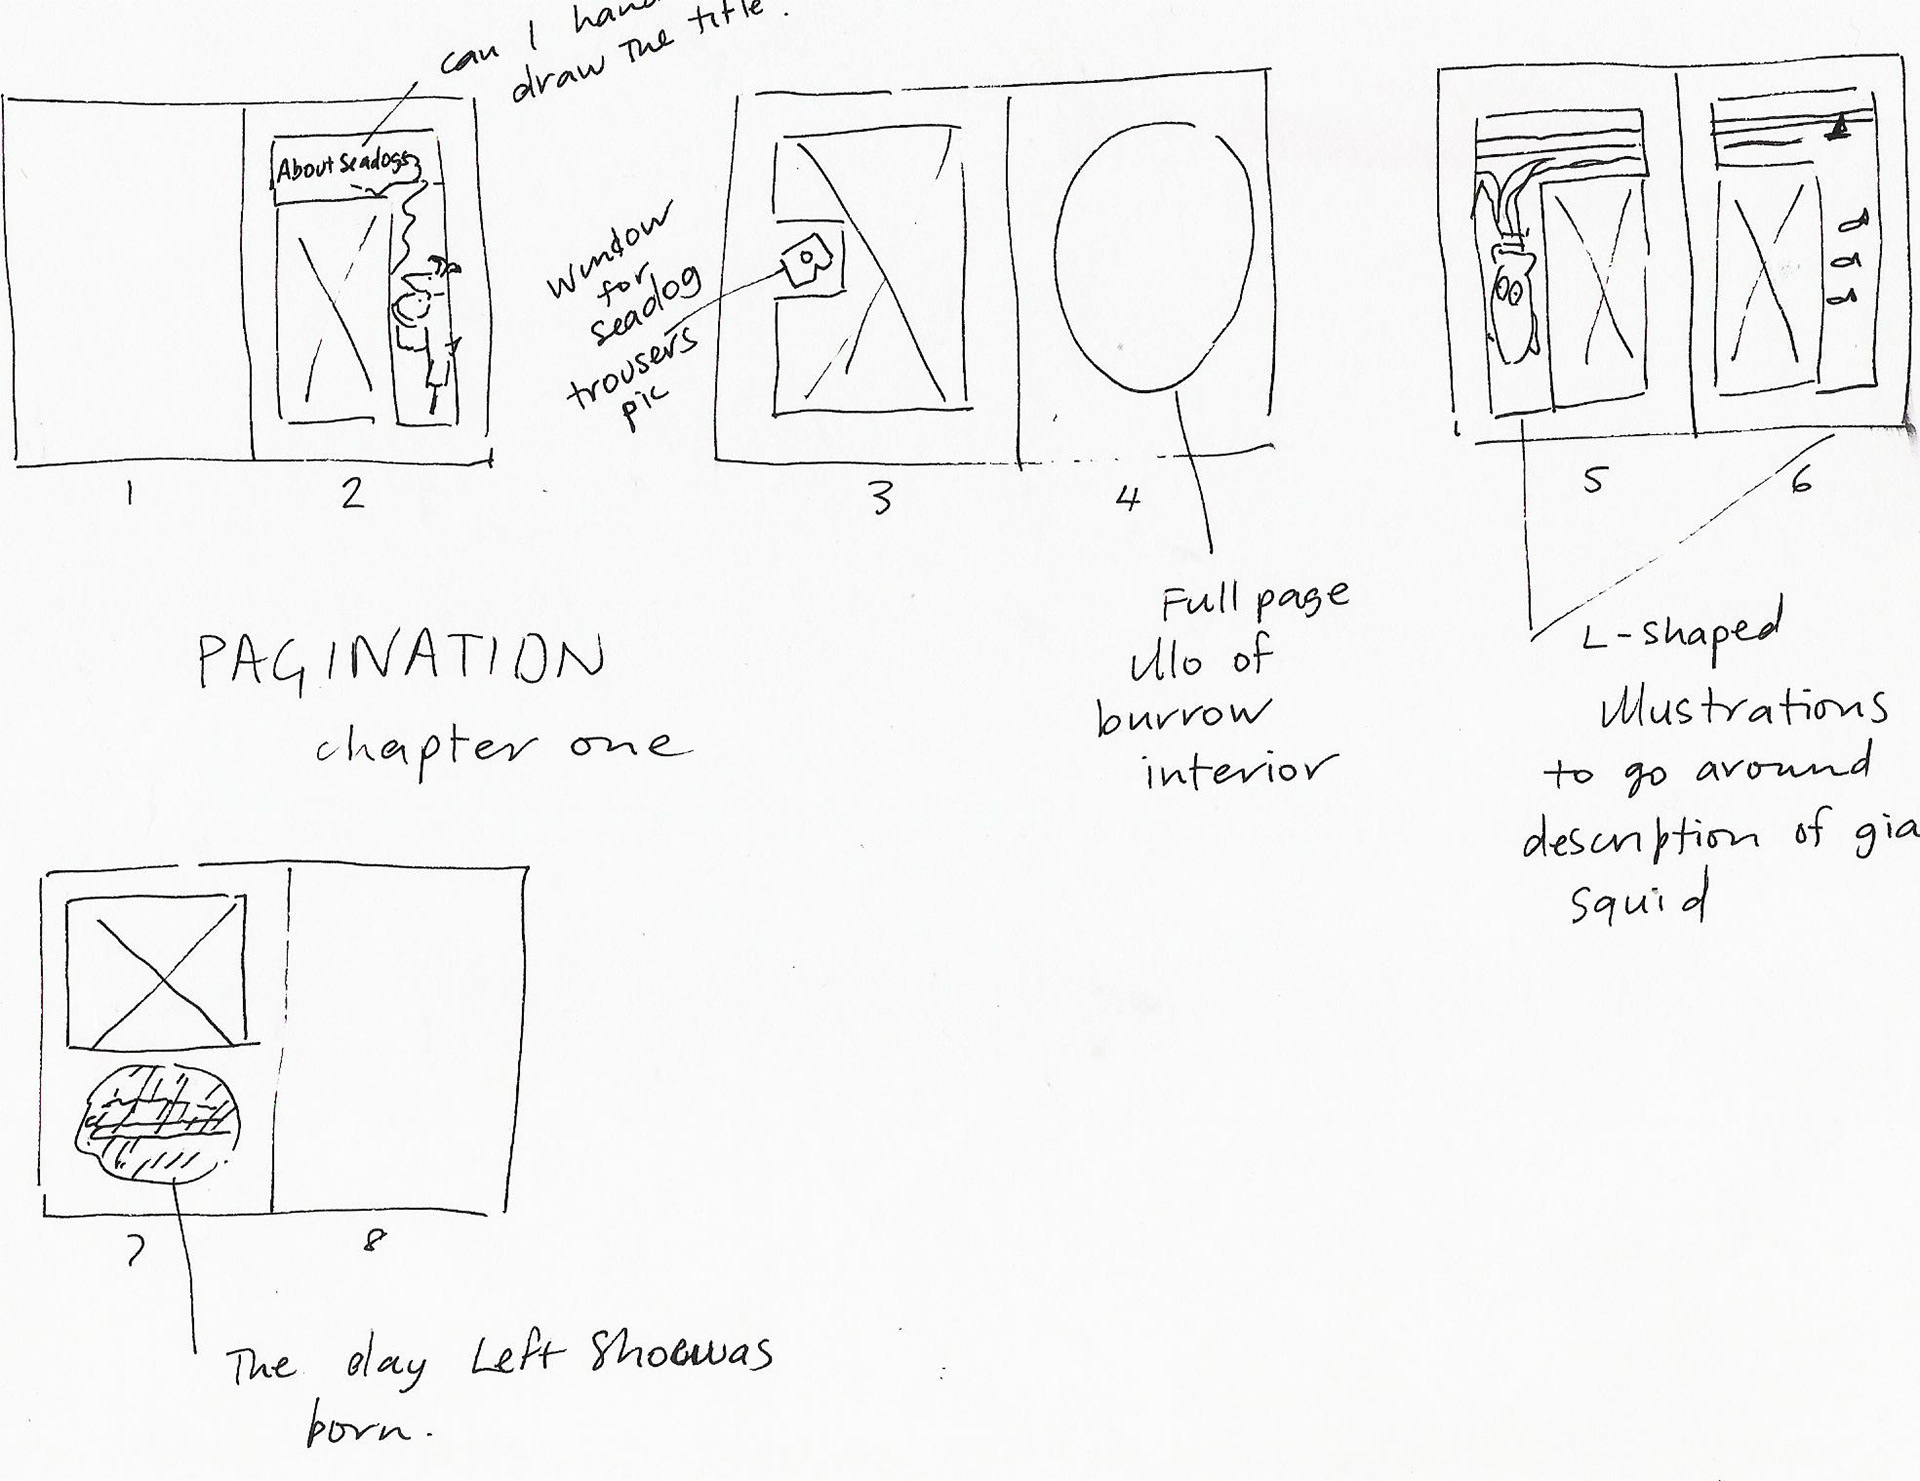 can I hand
draw The title.
About Seadogs
window
for
seadog
trousers
pic
1
2
3
4
5
6
Full page
illo of
burrow
interior
L-shaped
illustrations
to go around
description of gia
squid
PAGINATION
chapter one
7
8
The day Left Shoe was
born.